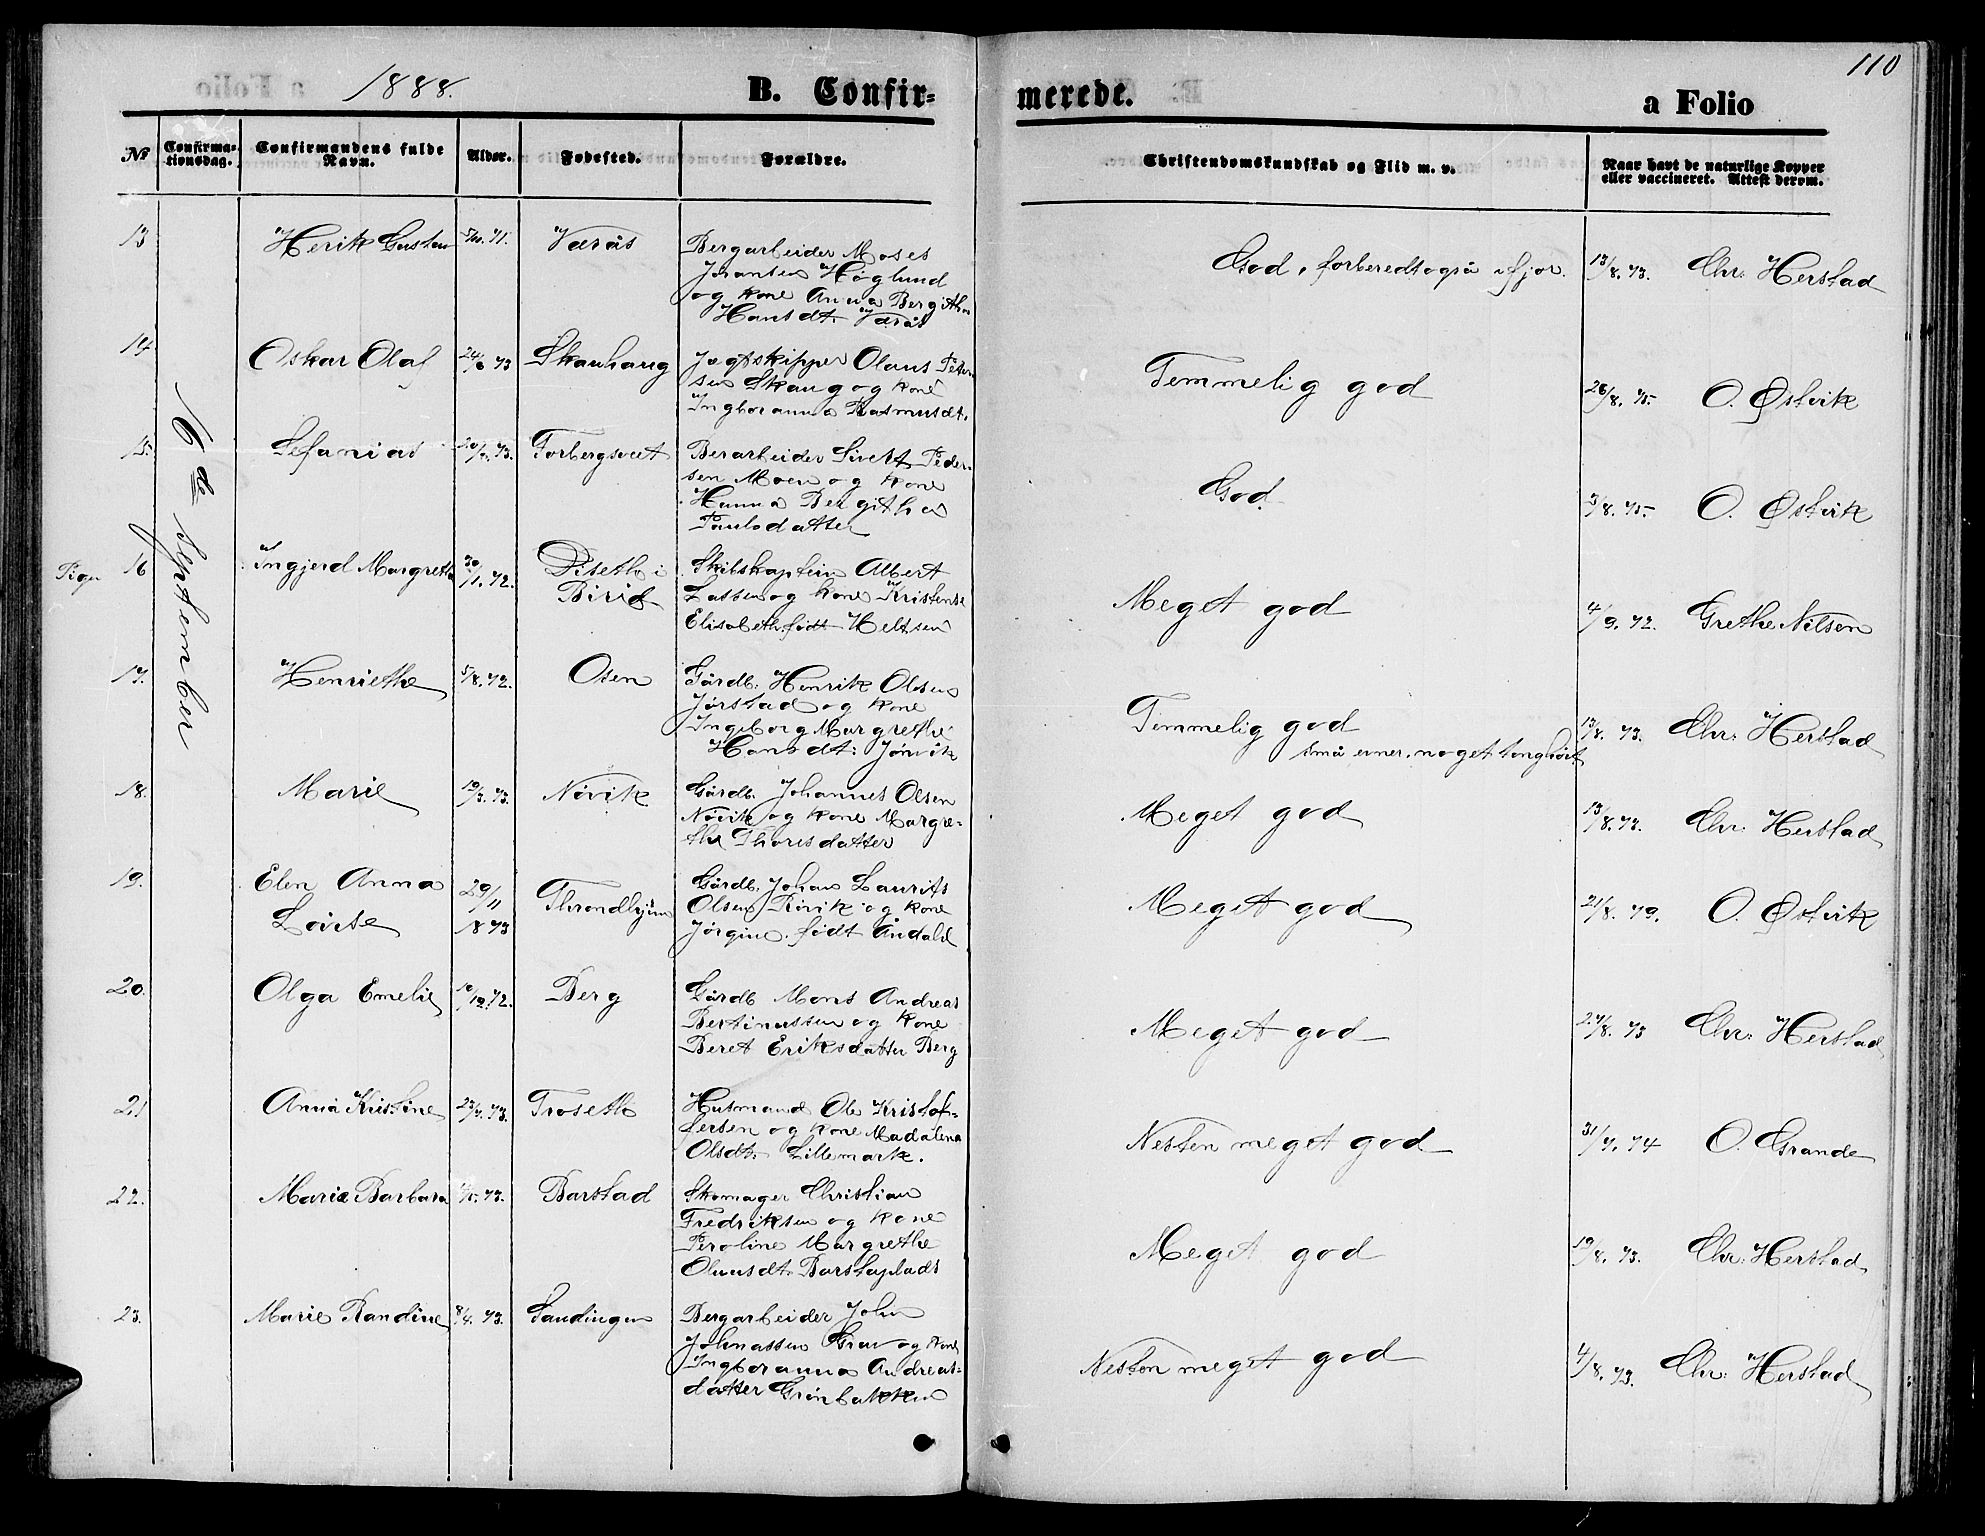 110
1888.
B. Confir=
merede.
a Folio
No
Confirma-
tionsdag.
Confirmandens fulde
Navn.
Alder.
Fødested.
Forældre.
Christendomskundskab og Flid m. v.
Naar havt de naturlige Kopper
eller vaccineret. Attest derom.
16de September
13 Henrik Gustav 71. Værås
Bergarbeider Moses
Høglund
og kone Anna Bergitha
Hansdt. Værås
God, forberedt også ifjor. 13/8. 73. Chr. Herstad
14 Oskar Olaf 24/6 73 Skauhaug
Jægtskipper Olaus Peter
sen Skaug og kone
Ingboranna Rasmusdt.
Temmelig god 26/8. 75. O. Østvik
15. Sefanias 73. Forbergsveet
Berarbeider Sivert Peder-
sen Moen og kone
Hanna Bergitha
Paulsdatter
God. 3/8. 75. O. Østvik
Piger 16 Ingjerd Margrethe 30/1. 72. Diseth i
Birid
Skibskaptein Albert
Lassen og kone Kristense
Elisabeth født Heltsen
Meget god 4/9. 72. Grethe Nilsen
17. Henriette 5/8. 72. Osen
Gårdb. Henrik Olsen
Jørstad og kone
Ingeborg Margrethe
Hansdt.
Temmelig god
små evner, noget tunghørt
13/8. 73. Chr. Herstad
18. Marie 73. Növik
Gårdb. Johannes Olsen
Növik og kone Margre-
the Thorisdatter
Meget god 13/8. 73. Chr. Herstad
19. Elen Anna
Lovise
29/11
1873
Throndhjem
Gårdb. Johan Laurits
Olsen Rövik og kone
Jørgine født Andahl
Meget god 21/8. 79. O. Østvik
20. Olga Emelie 10/12. 72. Berg
Gårdb Mons Andreas
Bertinussen og kone
Beret Eriksdatter Berg
Meget god 27/8. 73 Chr. Herstad
21 Anna Kristine 73. Troseth
Husmand Ole Kristof-
fersen og kone Madalena
Olsdt. Lillemark.
Nesten meget god 31/7. 74 O. Grande
22. Marie Barbara 73. Barstad
Skomager Christian
Fredriksen og kone
Peroline Margrethe
Olausdt. Barstaplads
Meget god 19/8. 73. Chr. Herstad
23. Marie Randine 8/4. 73. Sandingen
Bergarbeider John
Johnassen Grav og kone
Ingboranna Andreas-
datter Grönbakken
Nesten meget god 4/8. 73. Chr. Herstad